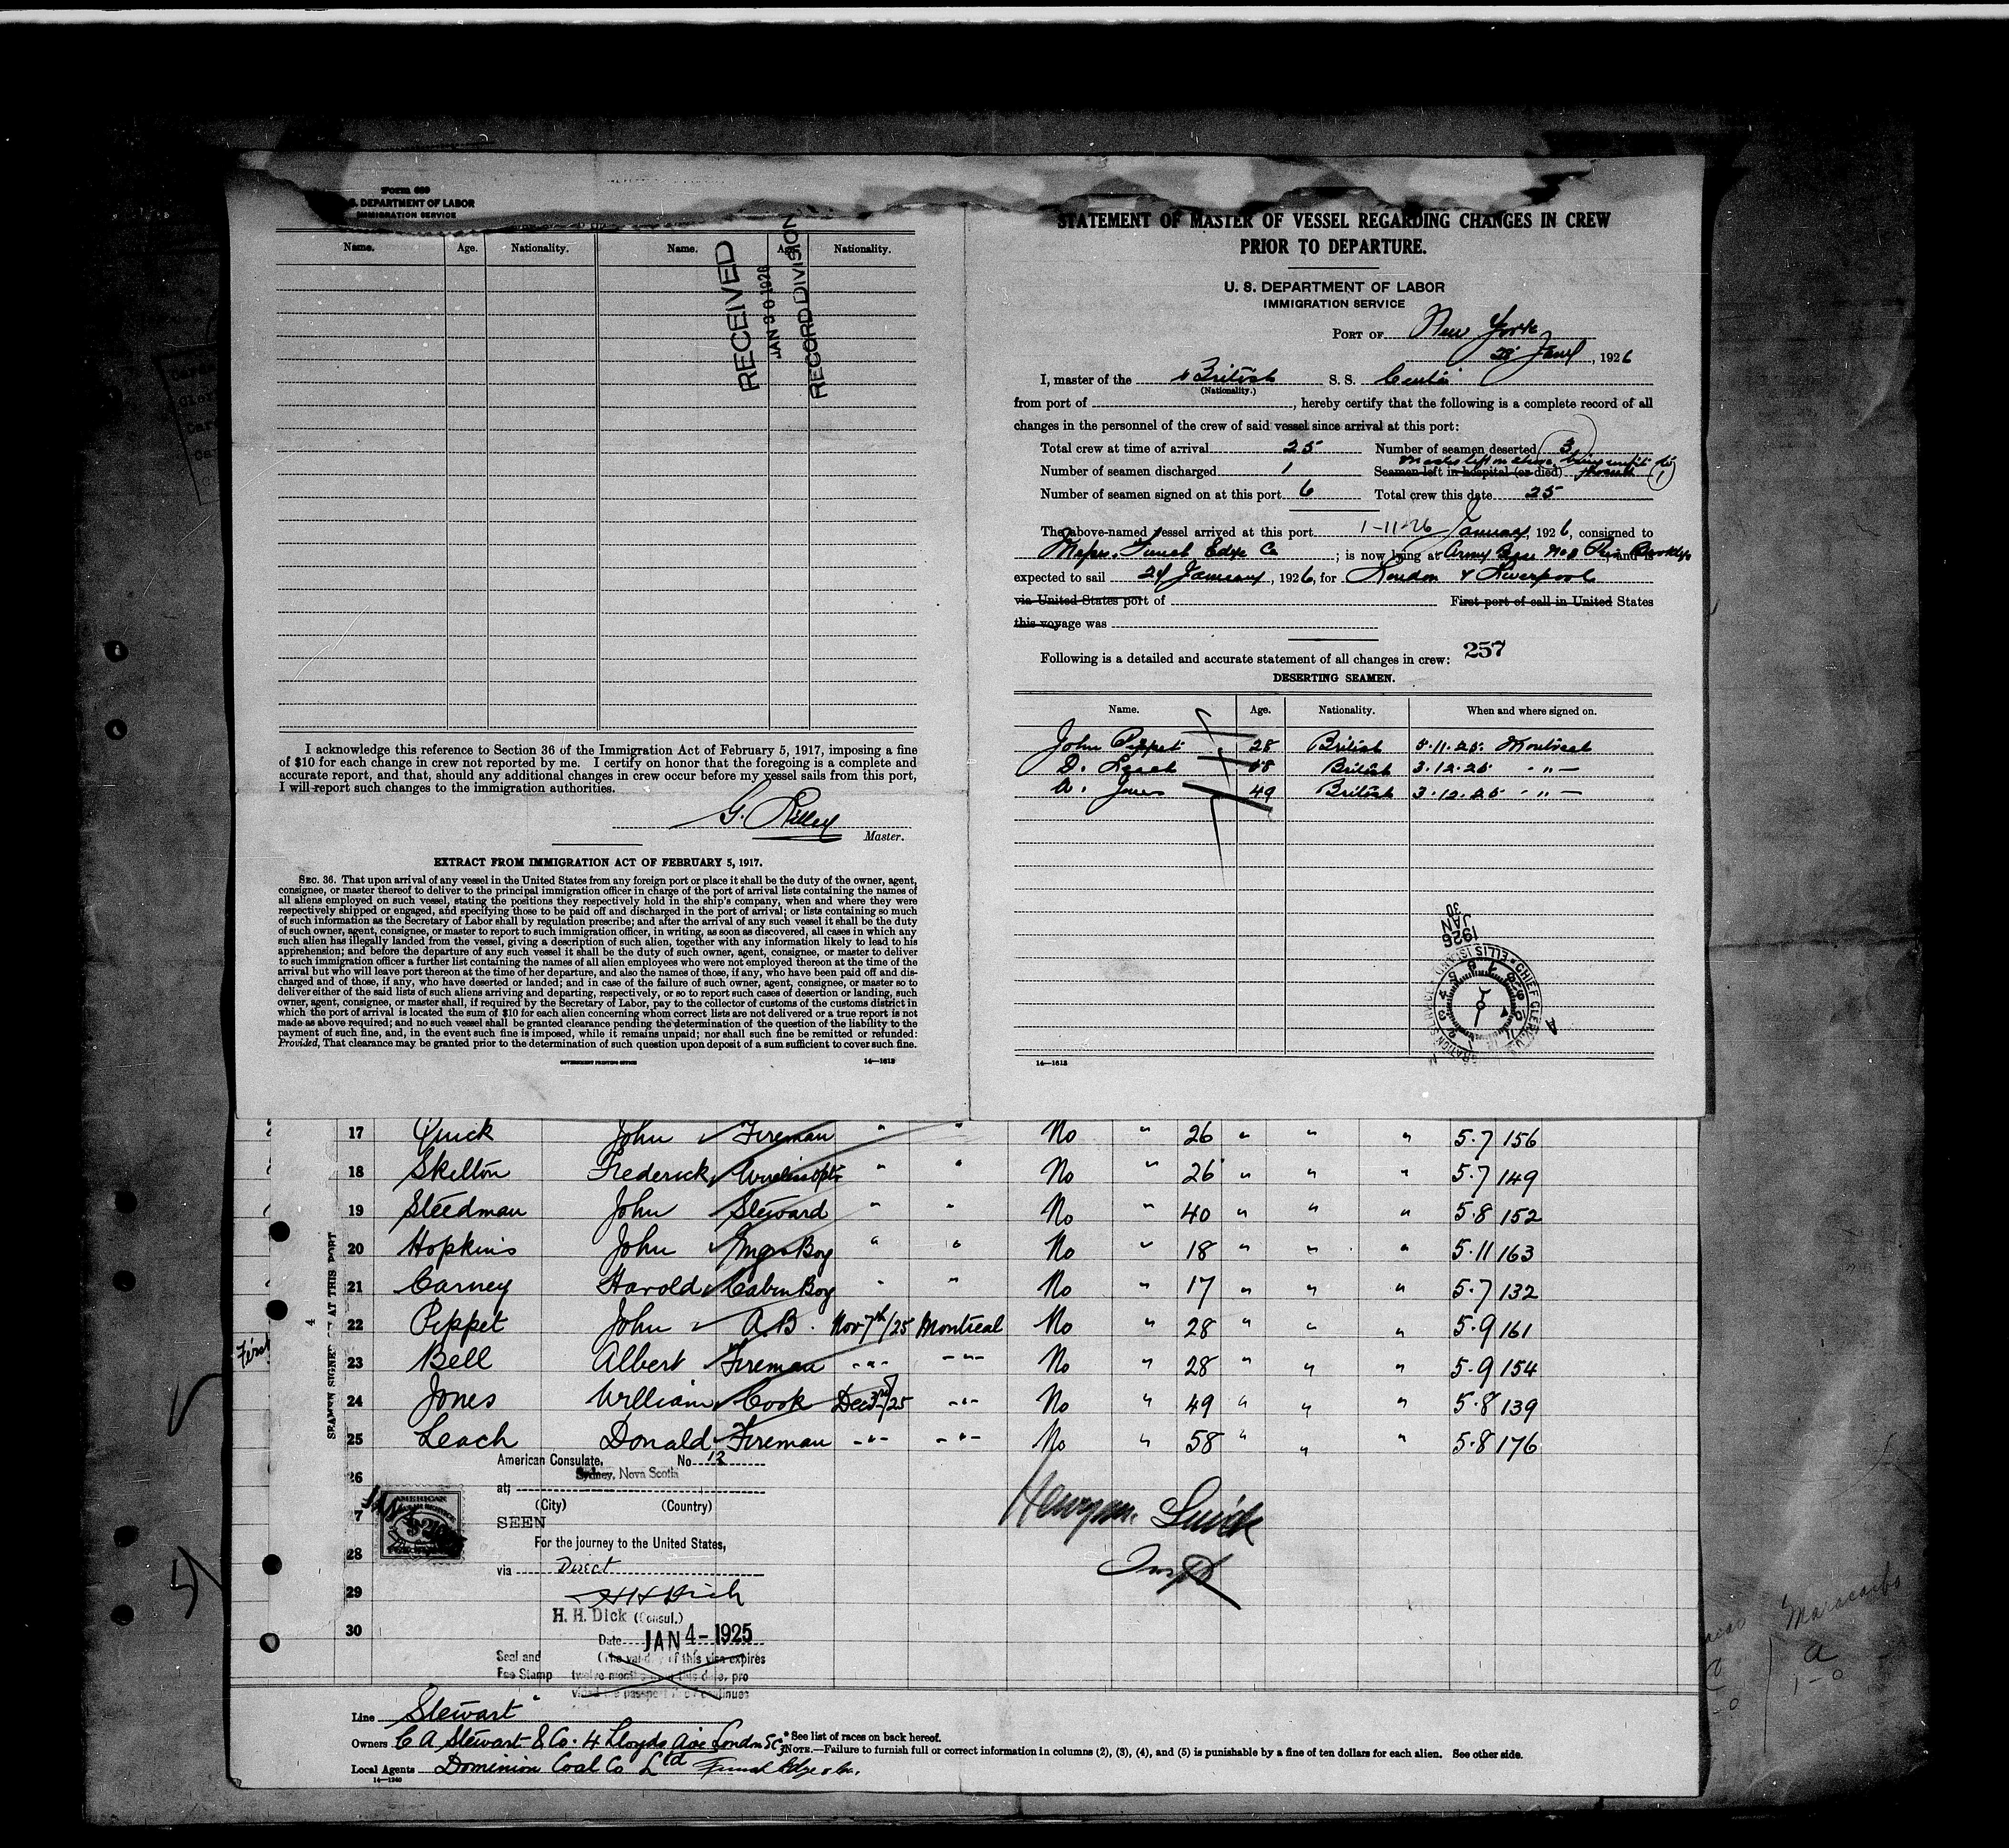 Form 689
S. DEPARTMENT OF LABOR
IMMIGRATION SERVICE
Name. Age. Nationality. Name. Age. Nationality.
RECEIVED
JAN 30 1926
RECORD DIVISION
I acknowledge this reference to Section 36 of the Immigration Act of February 5, 1917, imposing a fine
of $10 for each change in crew not reported by me. I certify on honor that the foregoing is a complete and
accurate report, and that, should any additional changes in crew occur before my vessel sails from this port,
I will report such changes to the immigration authorities.
Master.
EXTRACT FROM IMMIGRATION ACT OF FEBRUARY 5, 1917.
SEC. 36. That upon arrival of any vessel in the United States from any foreign port or place it shall be the duty of the owner, agent,
consignee, or master thereof to deliver to the principal immigration officer in charge of the port of arrival lists containing the names of
all aliens employed on such vessel, stating the positions they respectively hold in the ship's company, when and where they were
respectively shipped or engaged, and specifying those to be paid off and discharged in the port of arrival; or lists containing so much
of such information as the Secretary of Labor shall by regulation prescribe; and after the arrival of any such vessel it shall be the duty
of such owner, agent, consignee, or master to report to such immigration officer, in writing, as soon as discovered, all cases in which any
such alien has illegally landed from the vessel, giving a description of such alien, together with any information likely to lead to his
apprehension; and before the departure of any such vessel it shall be the duty of such owner, agent, consignee, or master to deliver
to such immigration officer a further list containing the names of all alien employees who were not employed thereon at the time of the
arrival but who will leave port thereon at the time of her departure, and also the names of those, if any, who have been paid off and dis-
charged and of those, if any, who have deserted or landed; and in case of the failure of such owner, agent, consignee, or master so to
deliver either of the said lists of such aliens arriving and departing, respectively, or so to report such cases of desertion or landing, such
owner, agent, consignee, or master shall, if required by the Secretary of Labor, pay to the collector of customs of the customs district in
which the port of arrival is located the sum of $10 for each alien concerning whom correct lists are not delivered or a true report is not
made as above required; and no such vessel shall be granted clearance pending the determination of the question of the liability to the
payment of such fine, and, in the event such fine is imposed, while it remains unpaid; nor shall such fine be remitted or refunded:
Provided, That clearance may be granted prior to the determination of such question upon deposit of a sum sufficient to cover such fine.
GOVERNMENT PRINTING OFFICE 14—1613
STATEMENT OF MASTER OF VESSEL REGARDING CHANGES IN CREW
PRIOR TO DEPARTURE.
U. S. DEPARTMENT OF LABOR
IMMIGRATION SERVICE
PORT OF New York
28 Jany, 1926
I, master of the British S. S.
(Nationality.)
from port of , hereby certify that the following is a complete record of all
changes in the personnel of the crew of said vessel since arrival at this port:
Total crew at time of arrival 25 Number of seamen deserted 3
Master left on shore, being unfit to proceed
Number of seamen discharged 1 Seamen left in hospital (or died) 1
Number of seamen signed on at this port 6 Total crew this date 25
The above-named vessel arrived at this port 1-11-26 January, 1926, consigned to
Messrs. Funch Edye Co ; is now lying at Army Base No 2 Pier Brooklyn, and is
expected to sail 29 January, 1926, for London & Liverpool
via United States port of First port of call in United States
this voyage was
Following is a detailed and accurate statement of all changes in crew: 257
DESERTING SEAMEN.
Name. Age. Nationality. When and where signed on.
John Peppet 28 British 5.11.25 Montreal
D. Leach 58 British 3.12.25 -"-
A. Jones 49 British 3.12.25 -"-
1926
JAN
30
CHIEF CLERK, ELLIS ISLAND
14—1613
SEAMEN SIGNED AT THIS PORT
4
First
17 Quick John Fireman " " No " 26 " " " 5.7 156
18 Skelton Frederick Wireless Optr " " No " 26 " " " 5.7 149
19 Steedman John Steward " " No " 40 " " " 5.8 152
20 Hopkins John Engrs Boy " " No " 18 " " " 5.11 163
21 Carney Harold Cabin Boy " " No " 17 " " " 5.7 132
22 Peppet John A.B. Nov 7th/25 Montreal No " 28 " " " 5.9 161
23 Bell Albert Fireman -"- -"- No " 28 " " " 5.9 154
24 Jones William Cook Dec 3rd/25 -"- No " 49 " " " 5.8 139
25 Leach Donald Fireman -"- -"- No " 58 " " " 5.8 176
American Consulate, No 12
26 Sydney, Nova Scotia
at;
(City) (Country)
27 SEEN
28 For the journey to the United States,
via Direct
29 H H Dick
H. H. Dick (Consul.)
30 Date JAN 4-1925
Seal and (The validity of this visa expires
Fee Stamp twelve months from this date, pro
vided the passport continues
Line Stewart
Owners C A Stewart & Co. 4 Lloyds Ave London EC3
Local Agents Dominion Coal Co Ltd Funch Edye & Co.
14—1240
*See list of races on back hereof.
NOTE.—Failure to furnish full or correct information in columns (2), (3), (4), and (5) is punishable by a fine of ten dollars for each alien. See other side.
Maracaibo
a
1-0